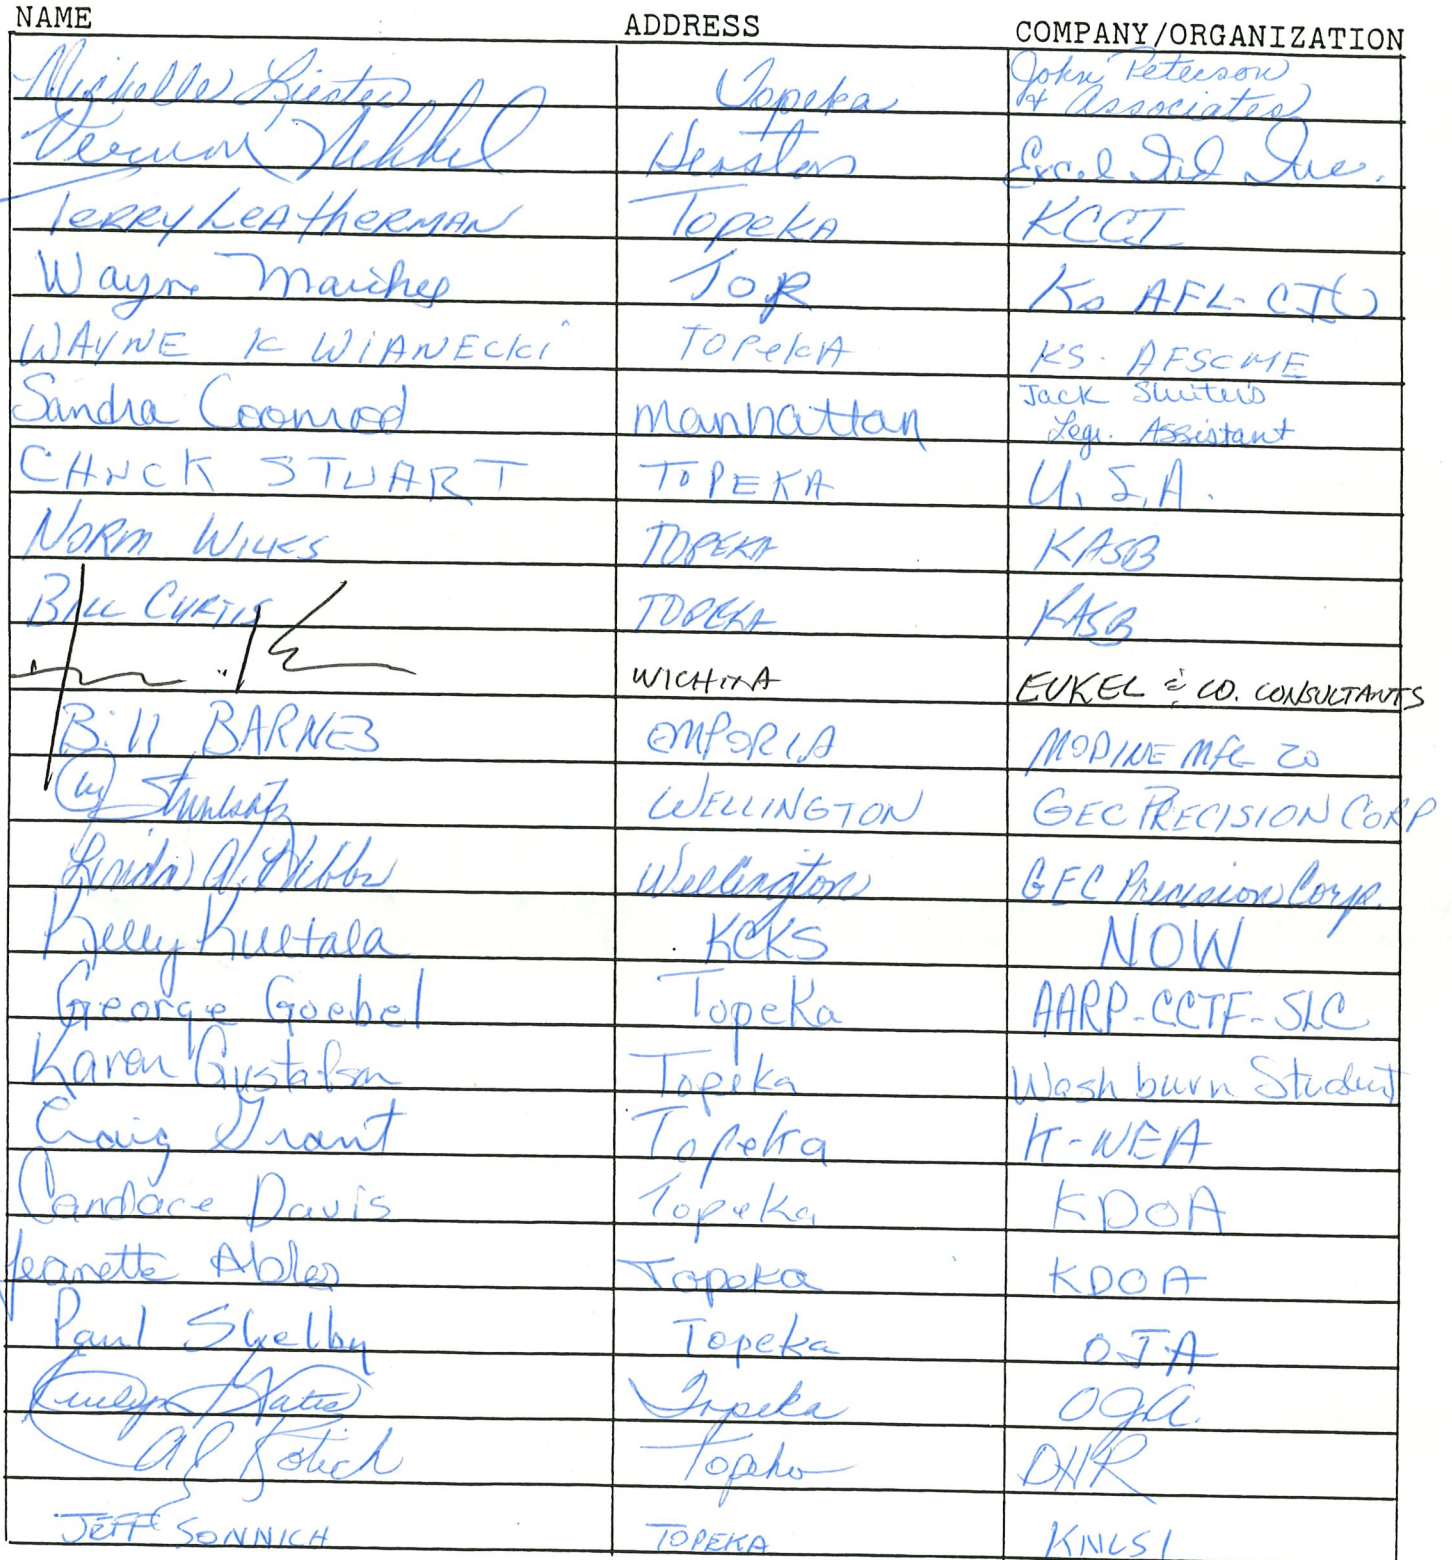 NAME ADDRESS COMPANY/ORGANIZATION
Michelle Liester Topeka John Peterson & Associates
Vernon Hesston Excel Ind Inc.
Terry Leatherman Topeka KCCI
Wayne Maichel Top Ks AFL-CIO
WAYNE K WIANECKI TOPEKA KS. AFSCME
Sandra Coomrod Manhattan Jack Shuiters Legi. Assistant
CHUCK STUART TOPEKA U.S.A.
NORM WILKS TOPEKA KASB
BILL CURTIS TOPEKA KASB
WICHITA EUKEL & CO. CONSULTANTS
Bill BARNES EMPORIA MODINE MFG CO
WELLINGTON GEC PRECISION CORP
Linda A. Wellington GEC Precision Corp.
Kelly Kultala KCKS NOW
George Goebel Topeka AARP-CCTF-SLC
Karen Gustafson Topeka Washburn Student
Craig Grant Topeka K-NEA
Candace Davis Topeka KDOA
Jeanette Ables Topeka KDOA
Paul Shelby Topeka OJA
Topeka OJA.
Al Kotich Topeka DHR
JEFF SONNICH TOPEKA KNLSI